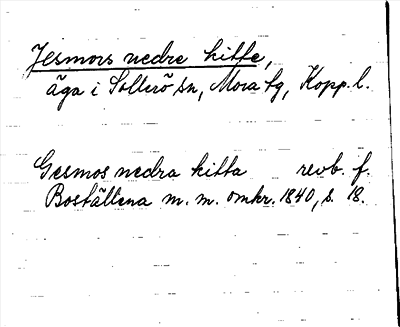 Jesmors nedre kitte,
äga i Sollerö sn, Mora tg, Kopp. l.
Gesmos nedra kitta revb. f.
Boställena m. m. omkr. 1840, s. 18.